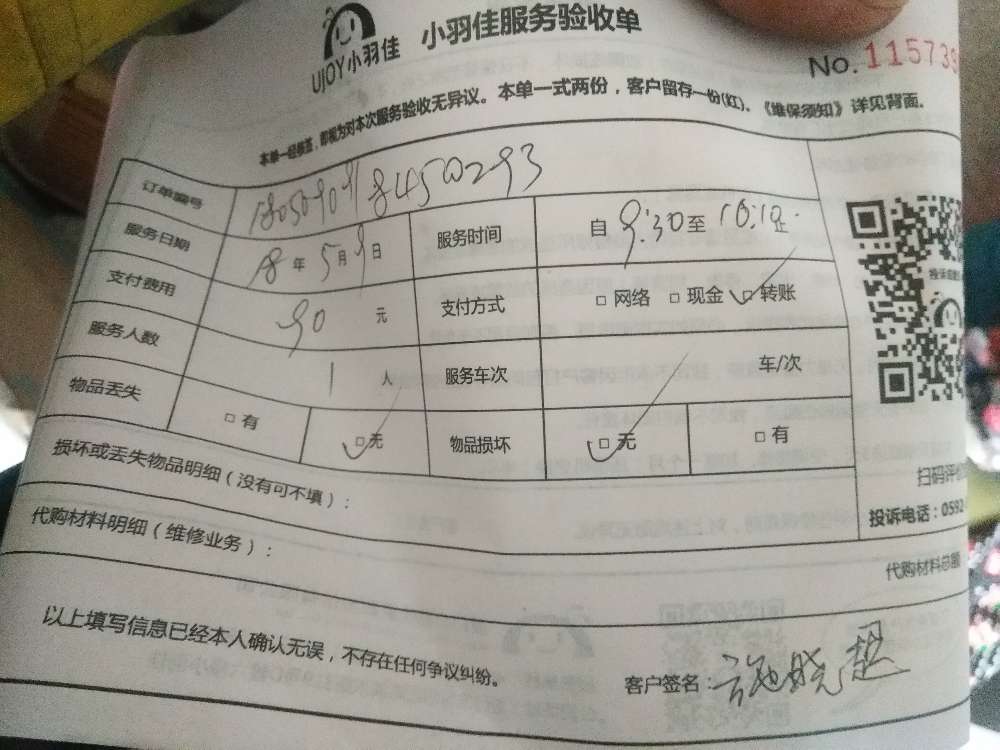 UJOY小羽佳 小羽佳服务验收单
No. 115739
本单一经接签，即视为对本次服务验收无异议。本单一式两份，客户留存一份(红)。《维保须知》详见背面。
订单编号
服务日期 18 年 5 月 9 日 服务时间 自 9:30 至 10:10 止
支付费用 90 元 支付方式 □ 网络 □ 现金 □ 转账
服务人数 1 人 服务车次 车/次
物品丢失 □ 有 □ 无 物品损坏 □ 无 □ 有
损坏或丢失物品明细（没有可不填）：
扫码评价
投诉电话：0592
代购材料明细（维修业务）：
代购材料总额
以上填写信息已经本人确认无误，不存在任何争议纠纷。
客户签名：施晓